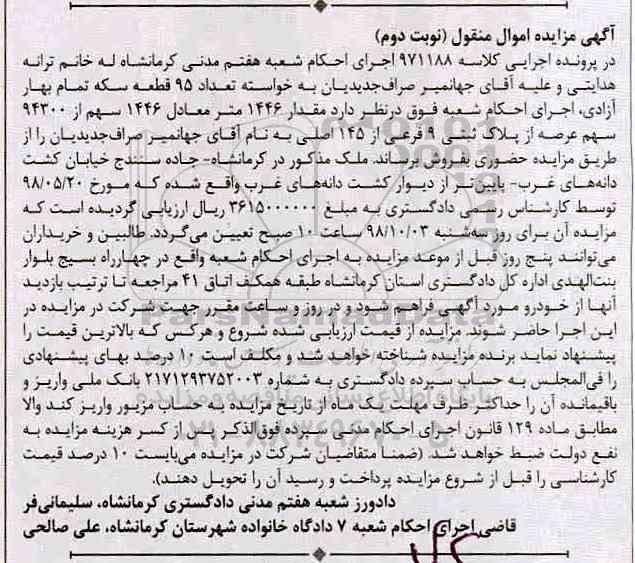 آگهی مزایده اموال منقول (نوبت دوم)
در پرونده اجرایی کلاسه ۹۷۱۱۸۸ اجرای احکام شعبه هفتم مدنی کرمانشاه له خانم ترانه
هدایتی و علیه آقای جهانمیر صراف‌جدیدیان به خواسته تعداد ۹۵ قطعه سکه تمام بهار
آزادی، اجرای احکام شعبه فوق درنظر دارد مقدار ۱۴۴۶ متر معادل ۱۴۴۶ سهم از ۹۴۳۰۰
سهم عرصه از پلاک ثبتی ۹ فرعی از ۱۴۵ اصلی به نام آقای جهانمیر صراف‌جدیدیان را از
طریق مزایده حضوری بفروش برساند. ملک مذکور در کرمانشاه- جاده سنندج خیابان کشت
دانه‌های غرب- پایین‌تر از دیوار کشت دانه‌های غرب واقع شده که مورخ ۹۸/۰۵/۲۰
توسط کارشناس رسمی دادگستری به مبلغ ۳۶۱۵۰۰۰۰۰۰ ریال ارزیابی گردیده است که
مزایده آن برای روز سه‌شنبه ۹۸/۱۰/۰۳ ساعت ۱۰ صبح تعیین می‌گردد. طالبین و خریداران
می‌توانند پنج روز قبل از موعد مزایده به اجرای احکام شعبه واقع در چهارراه بسیج بلوار
بنت‌الهدی اداره کل دادگستری استان کرمانشاه طبقه همکف اتاق ۴۱ مراجعه تا ترتیب بازدید
آنها از خودرو مورد آگهی فراهم شود و در روز و ساعت مقرر جهت شرکت در مزایده در
این اجرا حاضر شوند. مزایده از قیمت ارزیابی شده شروع و هرکس که بالاترین قیمت را
پیشنهاد نماید برنده مزایده شناخته خواهد شد و مکلف است ۱۰ درصد بهای پیشنهادی
را فی‌المجلس به حساب سپرده دادگستری به شماره ۲۱۷۱۲۹۳۷۵۲۰۰۳ بانک ملی واریز و
باقیمانده آن را حداکثر ظرف مهلت یک ماه از تاریخ مزایده به حساب مزبور واریز کند والا
مطابق ماده ۱۲۹ قانون اجرای احکام مدنی سپرده فوق‌الذکر پس از کسر هزینه مزایده به
نفع دولت ضبط خواهد شد. (ضمنا متقاضیان شرکت در مزایده می‌بایست ۱۰ درصد قیمت
کارشناسی را قبل از شروع مزایده پرداخت و رسید آن را تحویل دهند).
دادورز شعبه هفتم مدنی دادگستری کرمانشاه، سلیمانی‌فر
قاضی اجرای احکام شعبه ۷ دادگاه خانواده شهرستان کرمانشاه، علی صالحی